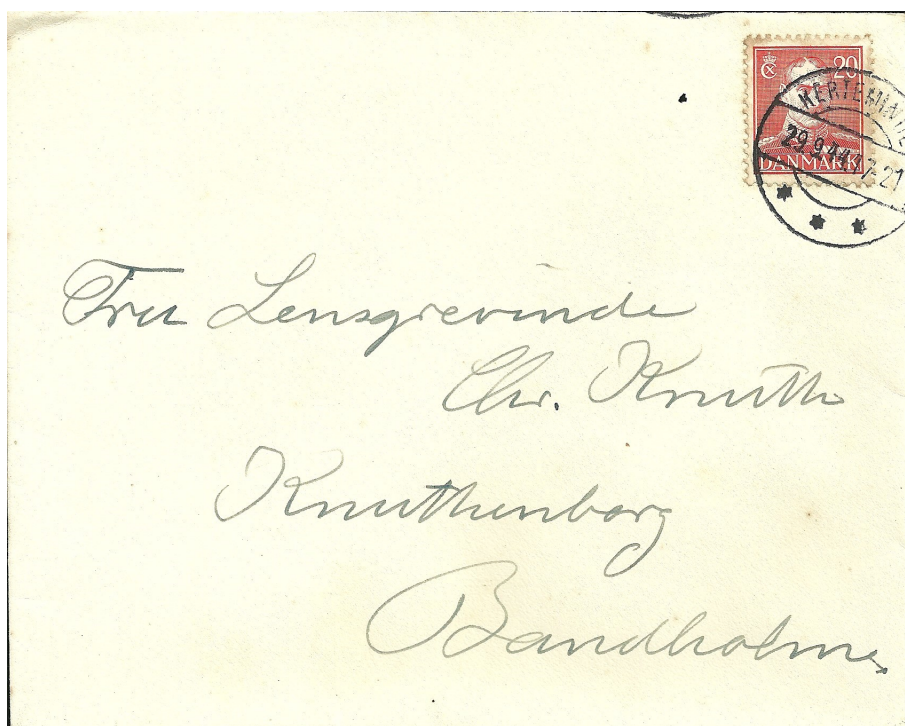 20
KERTEMINDE
29.9.44.17-21
DANMARK
Fru Lensgrevinde
Chr. Knuth
Knuthenborg
Bandholm.